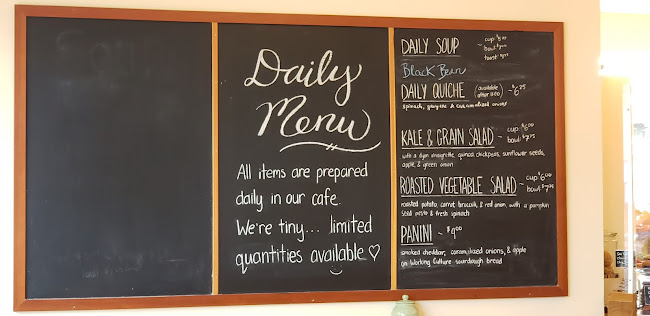 Daily
Menu
All items are prepared
daily in our cafe.
We're tiny... limited
quantities available ♡
DAILY SOUP ~ cup $5.00
bowl $7.00
toast
Black Bean
DAILY QUICHE (available after 11:00) ~ $6.75
spinach, gruyere & caramelized onions
KALE & GRAIN SALAD ~ cup: $6.00
bowl: $7.75
with a dijon vinaigrette, quinoa, chickpeas, sunflower seeds,
apple, & green onion
ROASTED VEGETABLE SALAD ~ cup $6.00
bowl
roasted potato, carrot, broccoli, & red onion, with a pumpkin
seed pesto & fresh spinach
PANINI ~ $9.00
smoked cheddar, caramelized onions, & apple
on Working Culture sourdough bread